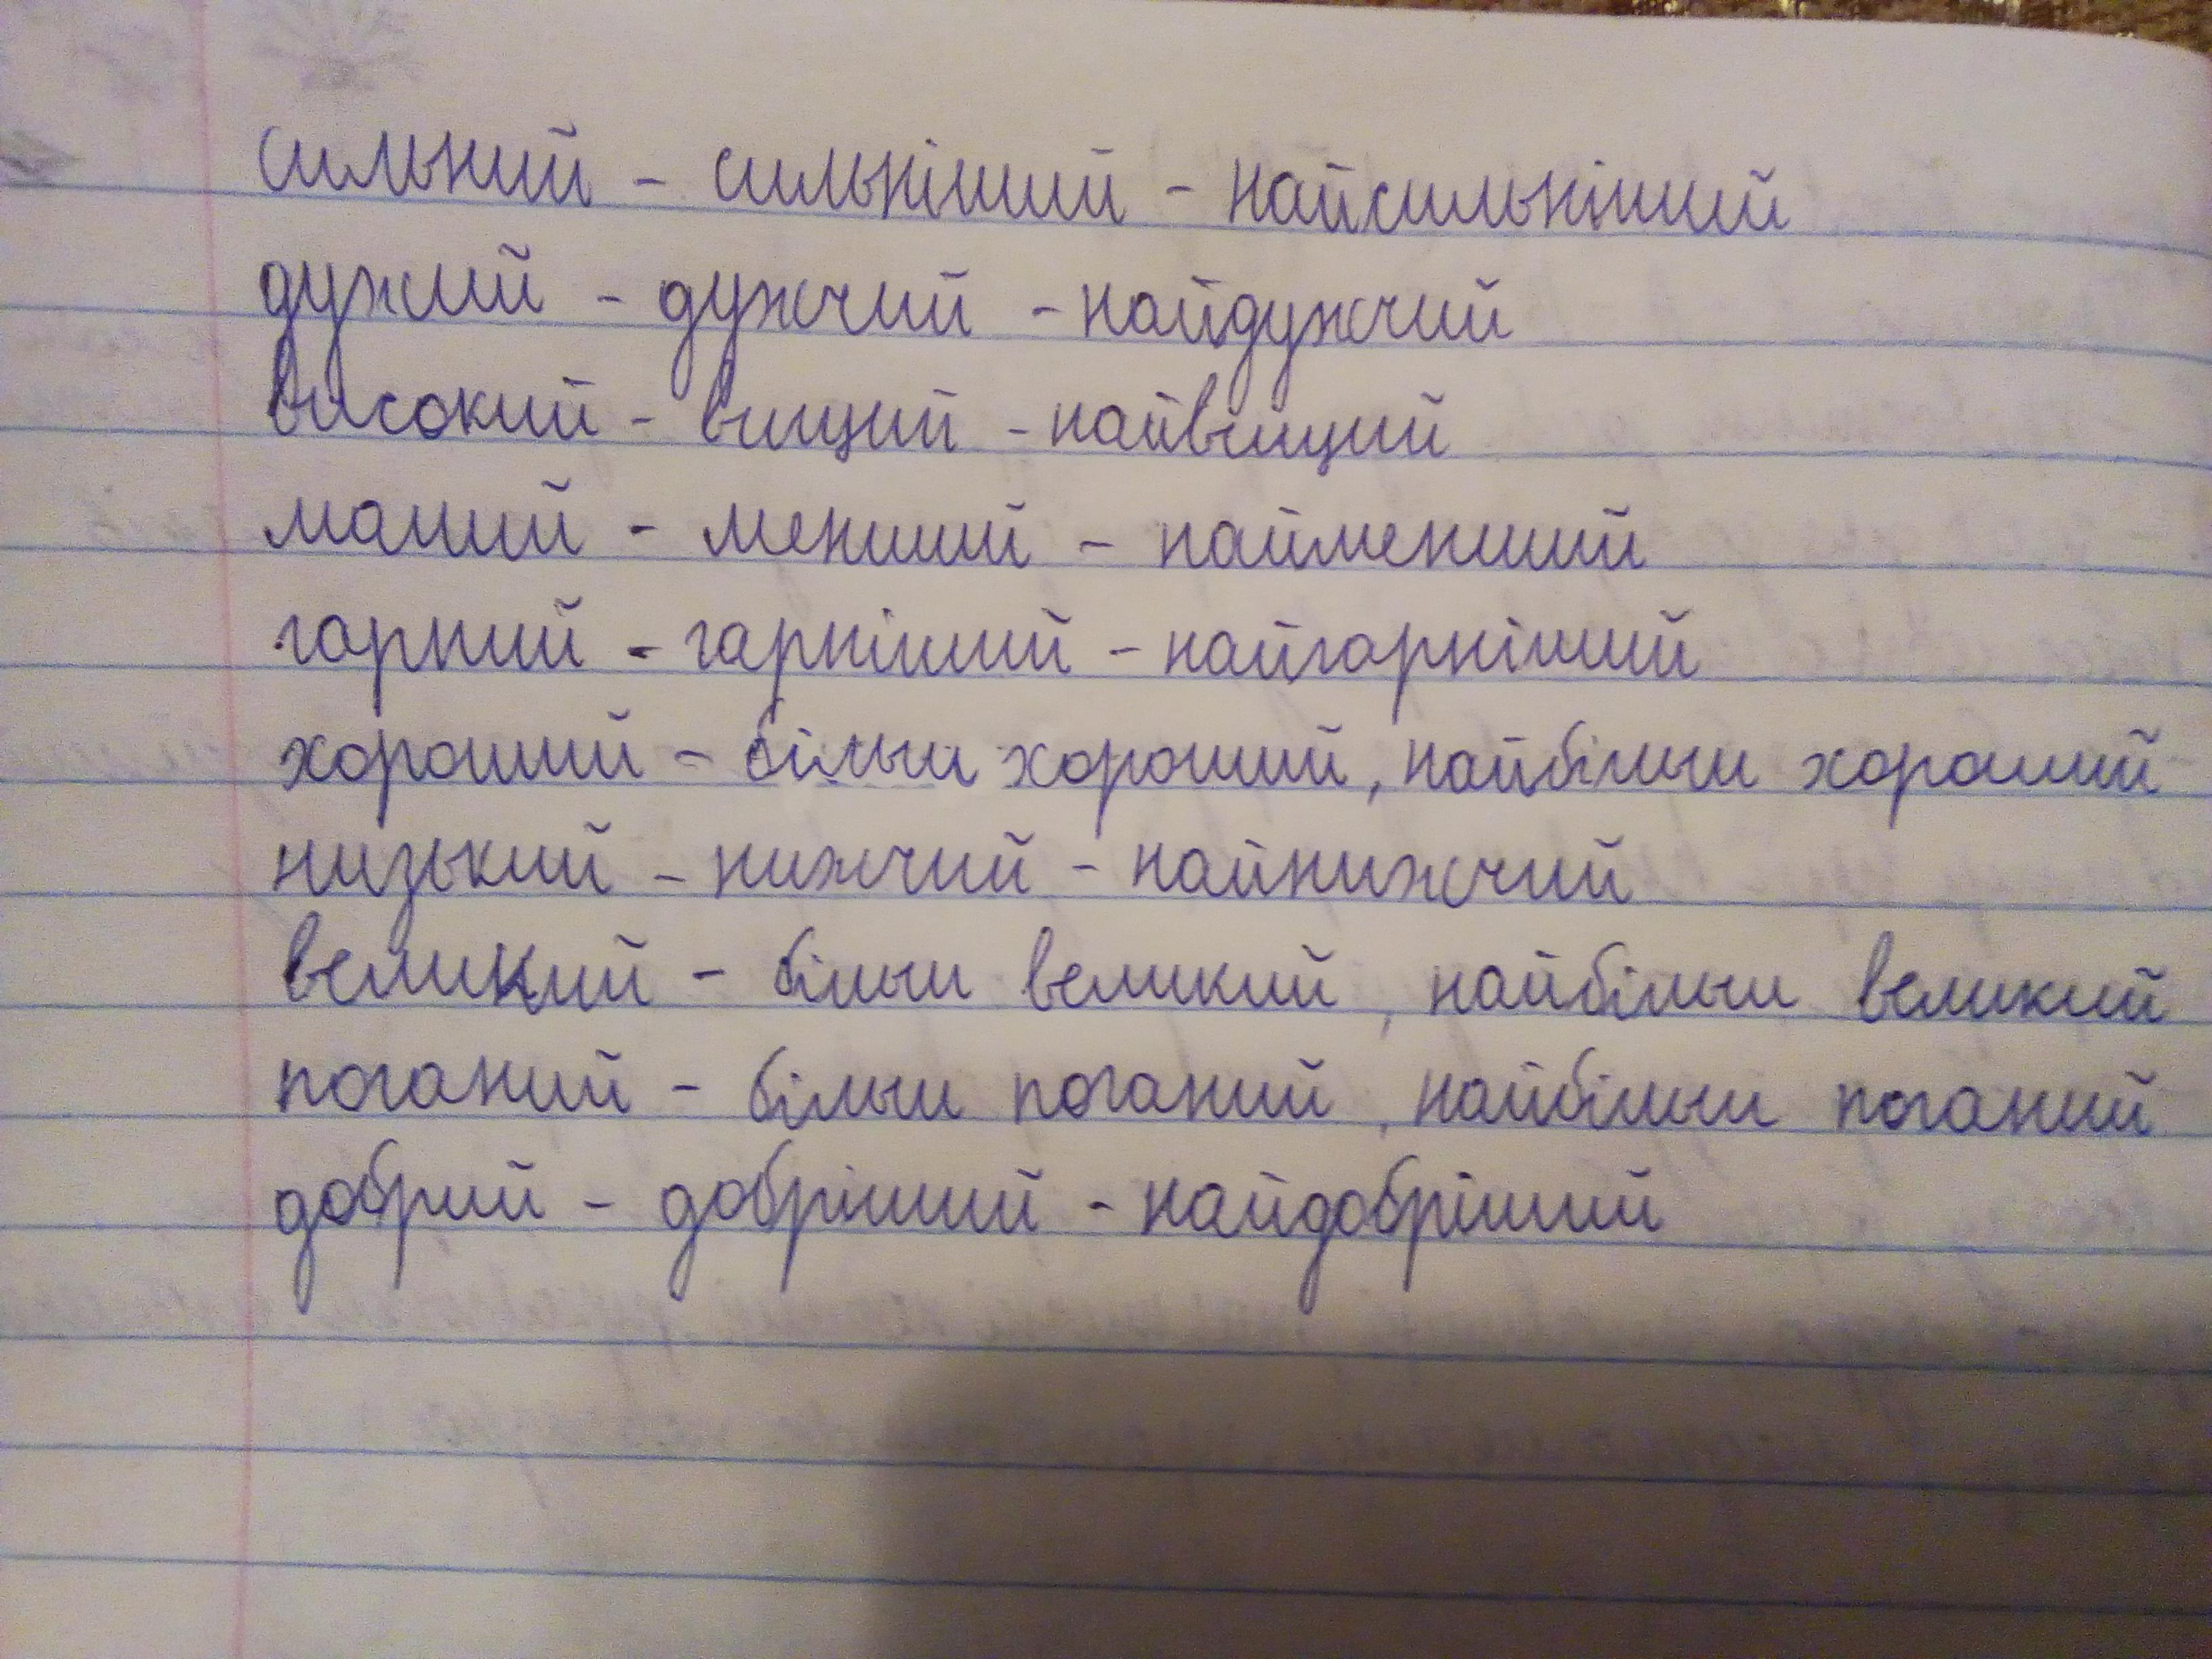 сильний - сильніший - найсильніший
дужий - дужчий - найдужчий
високий - вищий - найвищий
малий - менший - найменший
гарний - гарніший - найгарніший
хороший - більш хороший, найбільш хороший
низький - нижчий - найнижчий
великий - більш великий, найбільш великий
поганий - більш поганий, найбільш поганий
добрий - добріший - найдобріший